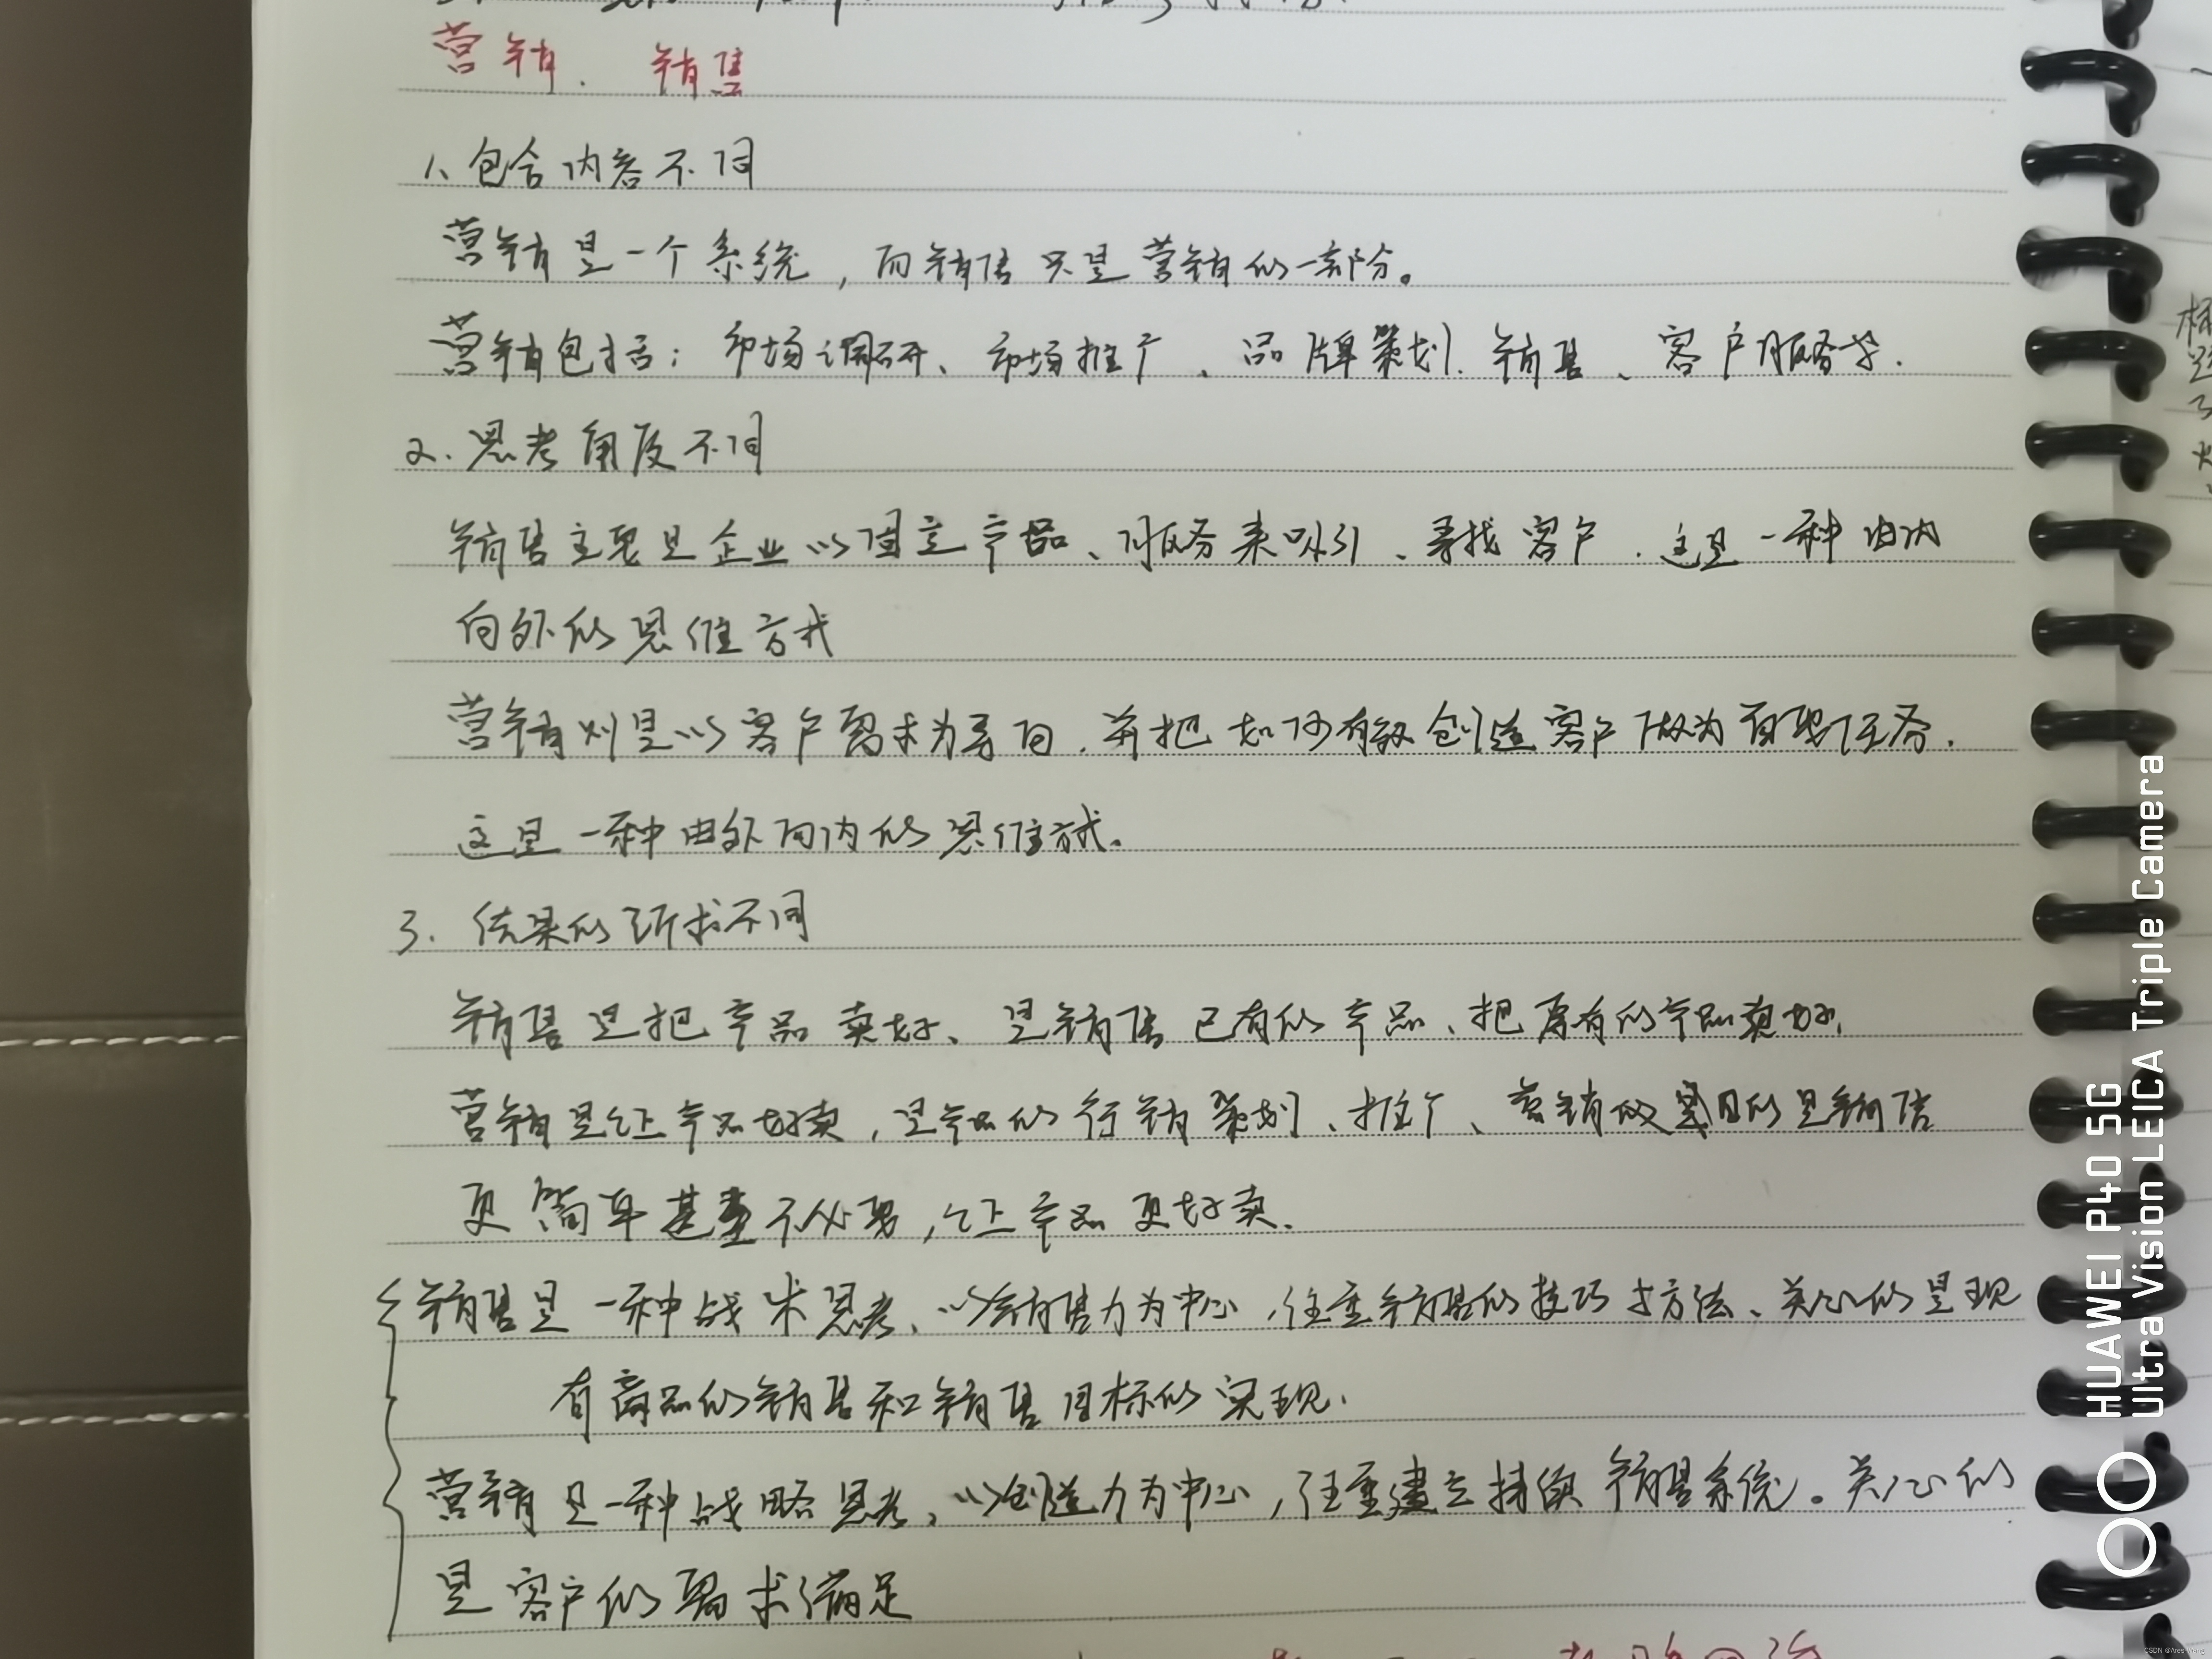 营销. 销售
1、包含内容不同
营销是一个系统,而销售只是营销的一部分。
营销包括:市场调研、市场推广、品牌策划.销售、客户服务等.
2.思考角度不同
销售主要是企业以固定产品、服务来吸引、寻找客户.这是一种由内
向外的思维方式
营销则是以客户需求为导向.并把如何有效创造客户做为首要任务.
这是一种由外向内的思维方式.
3.结果的诉求不同
销售是把产品卖好、是销售已有的产品、把原有的产品卖好.
营销是让产品好卖,是产品的行销策划、推广、营销的目的是销售
更简单甚至不必要,让产品更好卖.
销售是一种战术思考、以销售力为中心,注重销售的技巧与方法、关心的是现
有商品的销售和销售目标的实现.
营销是一种战略思考、以创造力为中心,注重建立持续销售系统。关心的
是客户的需求满足
HUAWEI P40 5G
Ultra Vision LEICA Triple Camera